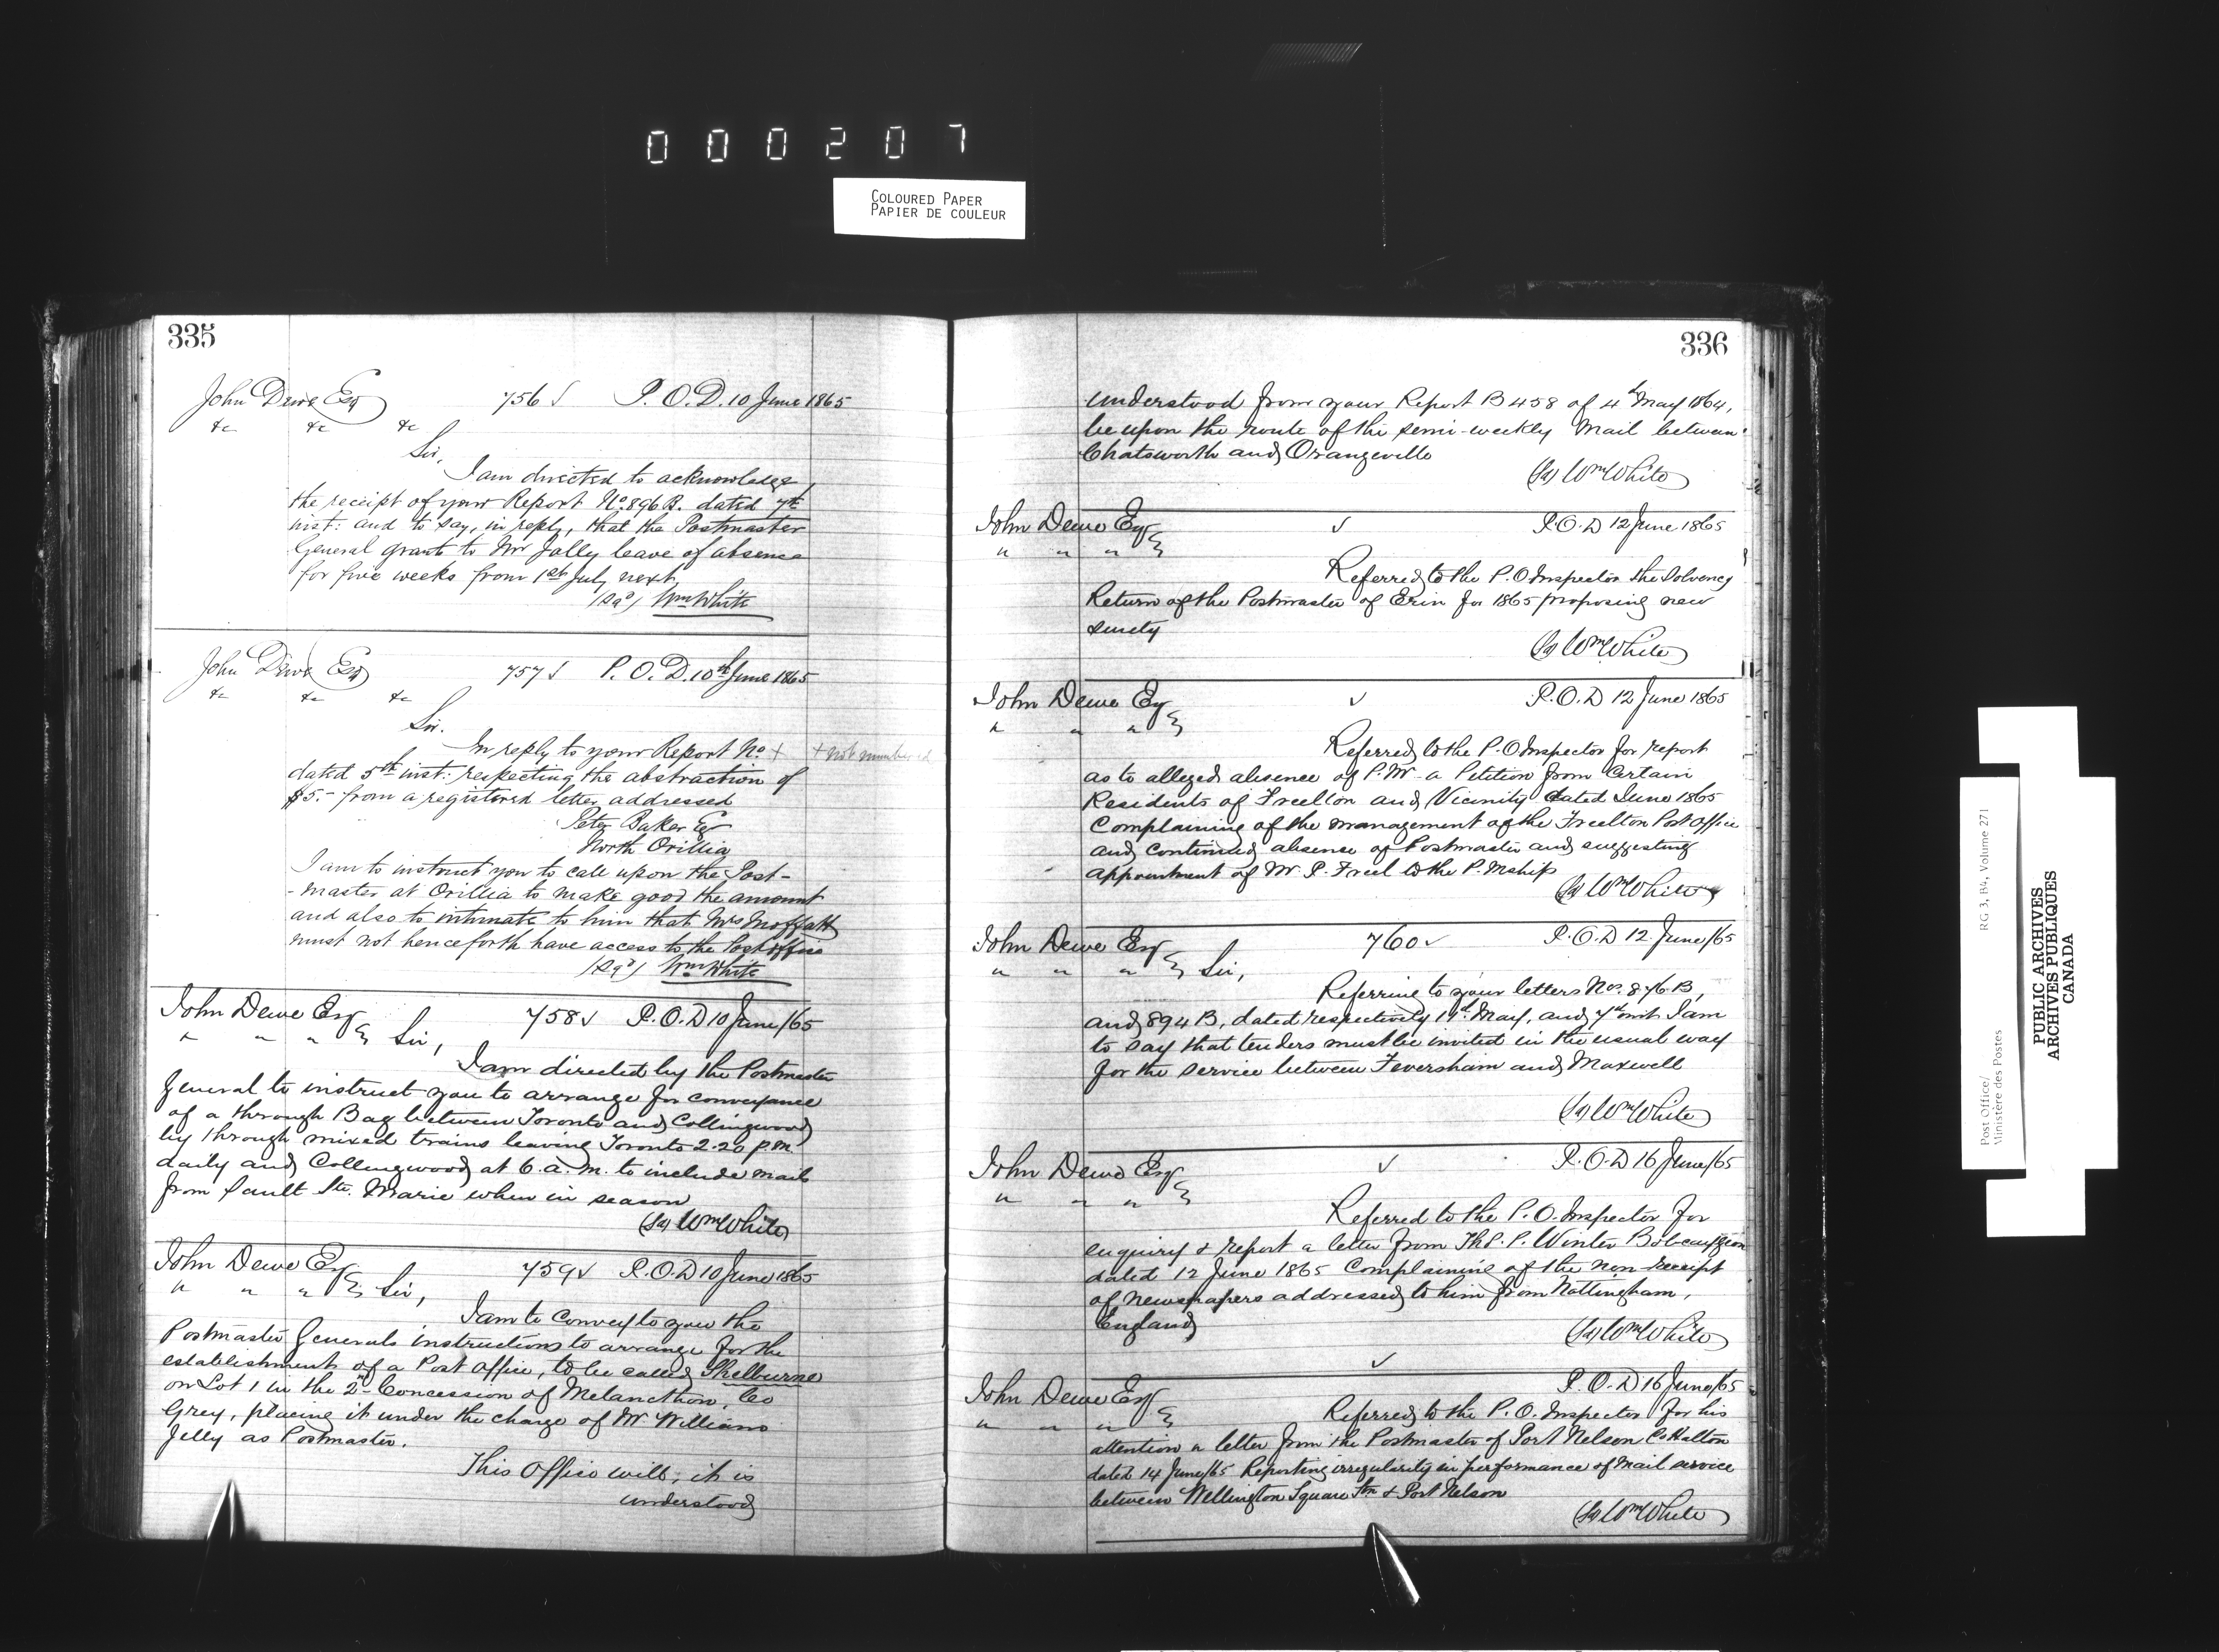 000207
COLOURED PAPER
PAPIER DE COULEUR
335
John Dewe Esq 756 ✓ P.O.D. 10 June 1865
&c &c &c
Sir,
I am directed to acknowledge
the receipt of your Report No. 896 B. dated 7th
inst: and to say, in reply, that the Postmaster
General grants to Mr Jolly leave of absence
for five weeks from 1st July next,
(Sgd) Wm White
John Dewe Esq 757 ✓ P.O.D. 10th June 1865
&c &c &c
Sir.
In reply to your Report No. + + not numbered
dated 5th inst: respecting the abstraction of
$5.- from a registered letter addressed
Peter Baker Esq
North Orillia
I am to instruct you to call upon the Post-
-master at Orillia to make good the amount
and also to intimate to him that Mrs Moffatt
must not henceforth have access to the Post office
(Sgd) Wm White
John Dewe Esq 758 ✓ P.O.D 10 June/65
" " " Sir,
I am directed by the Postmaster
General to instruct you to arrange for conveyance
of a through Bag between Toronto and Collingwood
by through mixed trains leaving Toronto 2.20 p.m.
daily and Collingwood at 6. a.m. to include mail
from Sault Ste. Marie when in season
(Sg) Wm White
John Dewe Esq 759 ✓ P.O.D 10 June 1865
" " " Sir,
I am to convey to you the
Postmaster Generals instructions to arrange for the
establishment of a Post Office, to be called Shelburne
on Lot 1 in the 2nd Concession of Melancthon, Co
Grey, placing it under the charge of Mr William
Jelly as Postmaster.
This Office will, it is
understood
336
understood from your Report B 458 of 4th May 1864,
be upon the route of the semi-weekly Mail between
Chatsworth and Orangeville
(Sg) Wm White
John Dewe Esq ✓ P.O.D 12 June 1865
" " "
Referred to the P.O Inspector the Solvency
Return of the Postmaster of Erin for 1865 proposing new
surety
(Sg) Wm White
John Dewe Esq ✓ P.O.D 12 June 1865
" " "
Referred to the P.O Inspector for report
as to alleged absence of P.M. a Petition from Certain
Residents of Freelton and Vicinity dated June 1865
Complaining of the management of the Freelton Post Office
and continued absence of Postmaster and suggesting
appointment of Mr. P. Freel to the P.Mship
(Sg) Wm White
John Dewe Esq 760 ✓ P.O.D 12 June/65
" " " Sir,
Referring to your letters Nos. 876 B,
and 894 B, dated respectively 19th May, and 7th inst I am
to say that tenders must be invited in the usual way
for the service between Feversham and Maxwell
(Sg) Wm White
John Dewe Esq ✓ P.O.D 16 June/65
" " "
Referred to the P.O. Inspector for
enquiry & report a letter from Thos. P. Winter Bobcaygeon
dated 12 June 1865 Complaining of the non-receipt
of newspapers addressed to him from Nottingham,
England
(Sg) Wm White
✓
John Dewe Esq P.O.D 16 June/65
" " "
Referred to the P.O. Inspector for his
attention a letter from the Postmaster of Port Nelson Co Halton
dated 14 June/65 Reporting irregularity in performance of Mail service
between Wellington Square Stn & Port Nelson
(Sg) Wm White
Post Office/ RG 3, B4, Volume 271
Ministère des Postes
PUBLIC ARCHIVES
ARCHIVES PUBLIQUES
CANADA